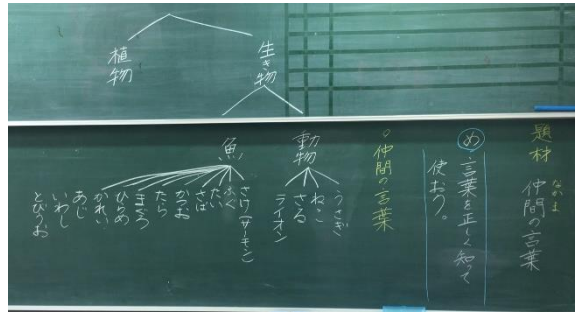 題材 仲間の言葉
なかま
め 言葉を正しく知って
使おう。
○仲間の言葉
生き物
植物
動物
うさぎ
ねこ
さる
ライオン
魚
さけ(サーモン)
ふぐ
たい
さば
かつお
たら
まぐろ
ひらめ
かれい
あじ
いわし
とびうお